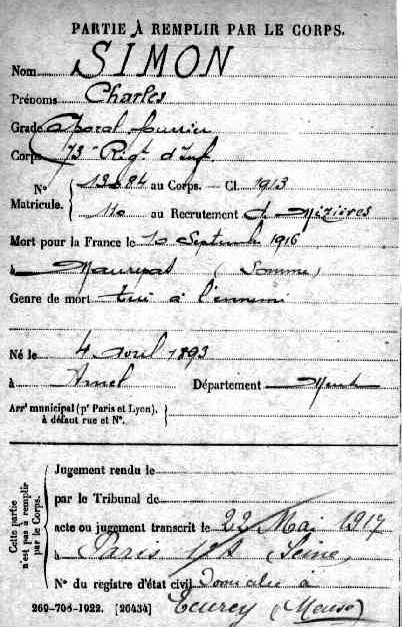 PARTIE À REMPLIR PAR LE CORPS.
Nom SIMON
Prénoms Charles
Grade Caporal fourrier
Corps 73e Régt d'Inf.
N° Matricule. { au Corps. — Cl. 1913
110 au Recrutement d Mézières
Mort pour la France le 10 Septembre 1916
à Maurepas (Somme)
Genre de mort tué à l'ennemi
Né le 4 avril 1893
à Amel Département Meuse
Arrt municipal (pr Paris et Lyon), à défaut rue et N°.
Cette partie n'est pas à remplir par le Corps.
Jugement rendu le
par le Tribunal de
acte ou jugement transcrit le 22 Mai 1917
à Paris Seine,
N° du registre d'état civil Domicilié à
(Meuse)
269-706-1922. [26434]